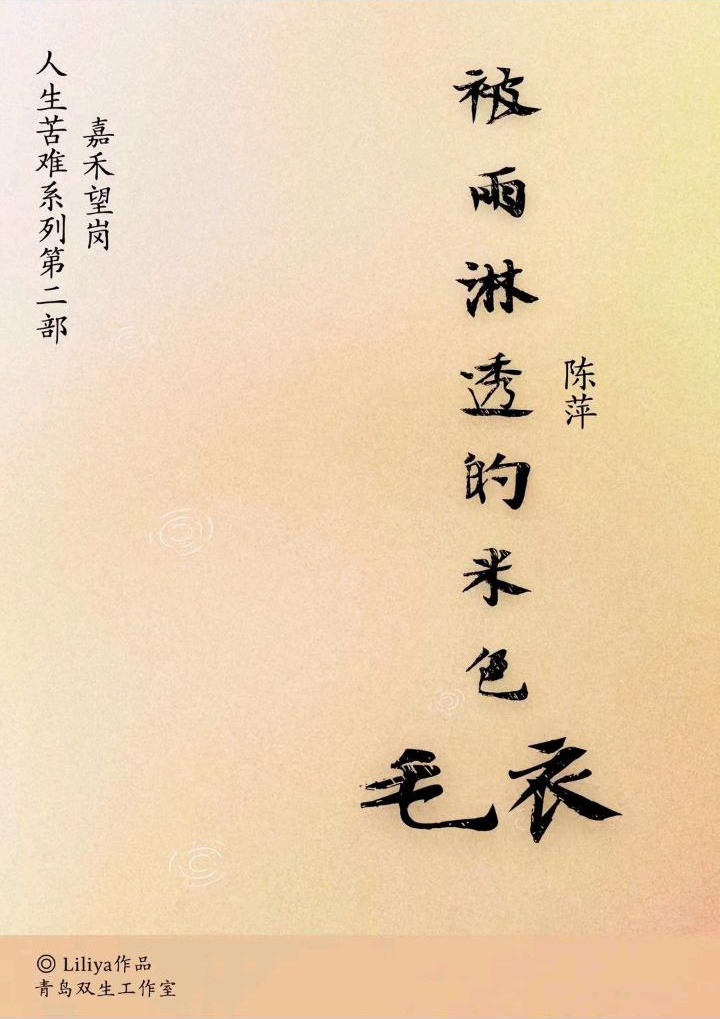 被雨淋透的米色
毛衣
陈萍
嘉禾望岗
人生苦难系列第二部
◎ Liliya作品
青鸟双生工作室